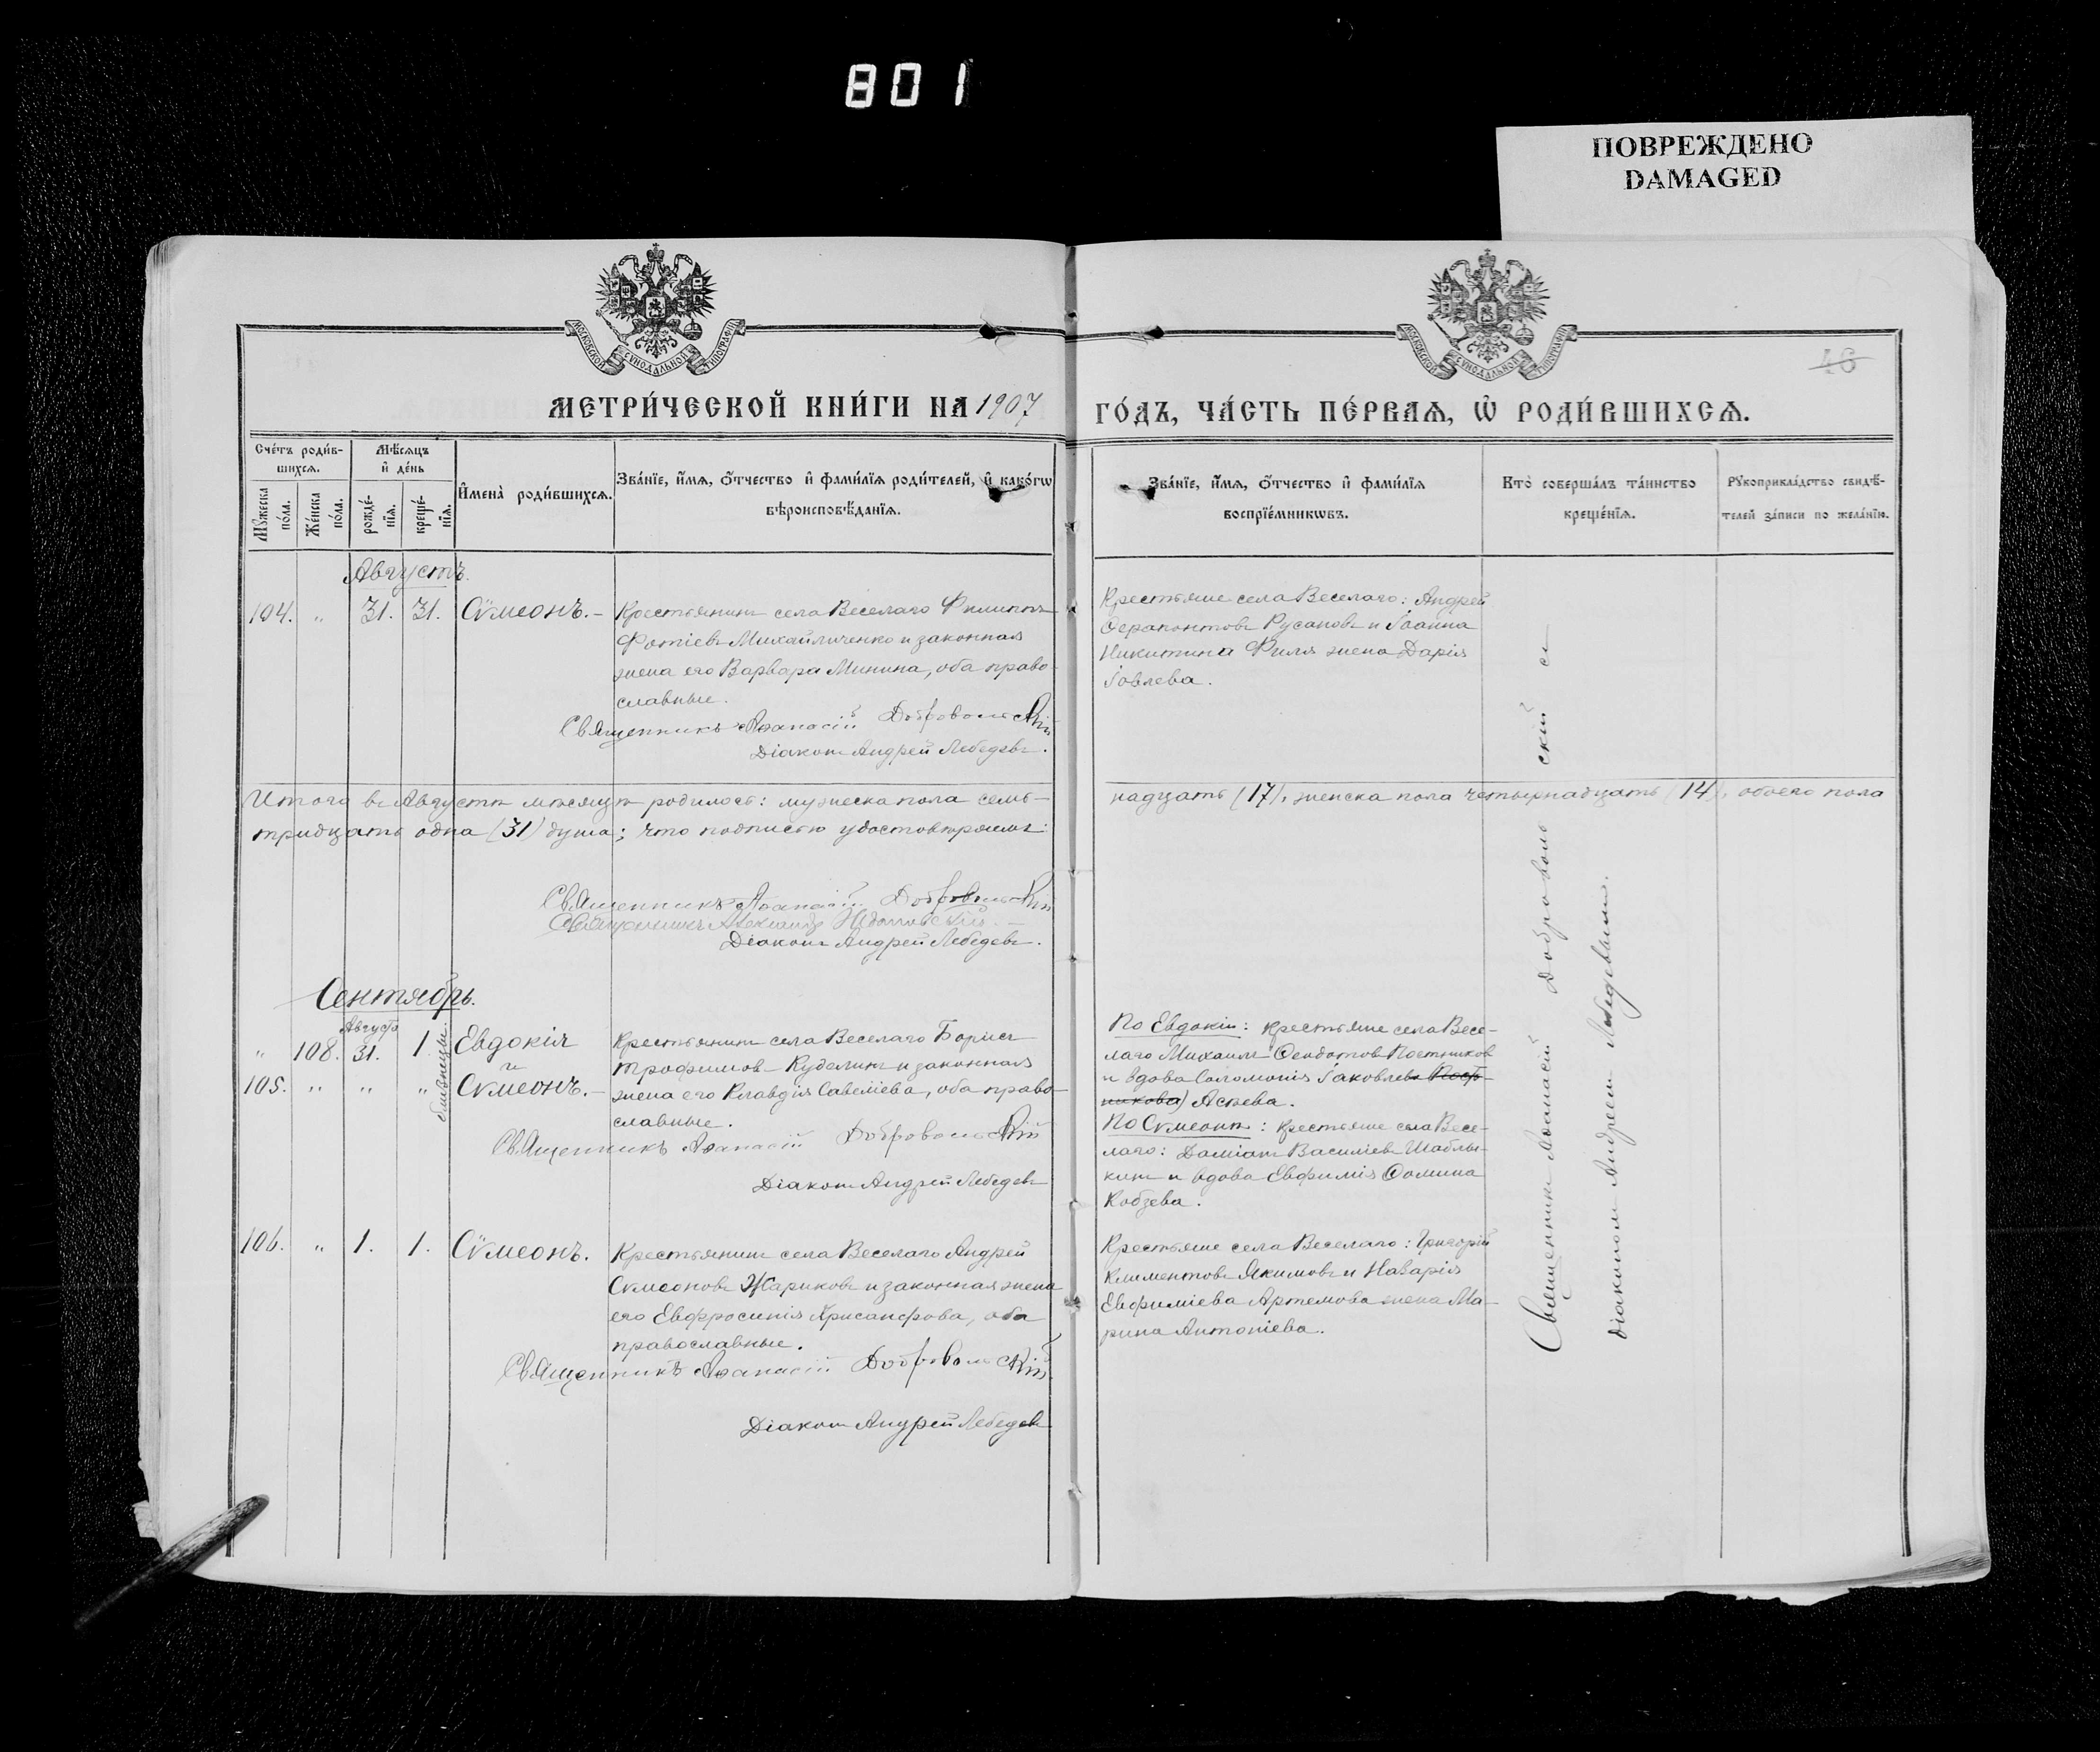 801
ПОВРЕЖДЕНО
DAMAGED
МОСКОВСКОЙ СѴНОДАЛЬНОЙ ТИПОГРАФІИ
МОСКОВСКОЙ СѴНОДАЛЬНОЙ ТИПОГРАФІИ
46
МЕТРИ́ЧЕСКОЙ КНИ́ГИ НА 1907
ГО́ДЪ, ЧА́СТЬ ПЕ́РВАЯ, Ѿ РОДИ́ВШИХСЯ.
Сче́тъ роди́в-
шихся.
Мѣ́сяцъ
и҆ де́нь
Мꙋ́жеска
по́ла.
Же́нска
по́ла.
рожде́-
нїѧ.
креще́-
нїѧ.
И҆мена̀ роди́вшихся.
Зва́нїе, и҆́мѧ, ѻ҆́тчество и҆ фами́лїѧ роди́телей, и҆ како́гѡ
вѣроисповѣ́данїѧ.
Зва́нїе, и҆́мѧ, ѻ҆́тчество и҆ фами́лїѧ
воспрїе́мникѡвъ.
Кто̀ соверша́лъ та́инство
креще́нїѧ.
Рꙋкоприкла́дство свидѣ́-
телей за́писи по жела́нїю.
Августъ.
104. " 31. 31. Сѵмеонъ.-
Крестьянинъ села Веселаго Филиппъ
Фотіевъ Михайличенко и законная
жена его Варвара Минина, оба право-
славные.
Священникъ Аѳанасій Добровольскій
Діаконъ Андрей Лебедевъ.
Крестьяне села Веселаго: Андрей
Ѳерапонтовъ Русановъ и Іоанна
Никитина Филя жена Дарія
Іовлева.
Итого въ Августѣ мѣсяцѣ родилось: мужеска пола семь-
надцать (17), женска пола четырнадцать (14), обоего пола
тридцать одна (31) душа; что подписью удостовѣряемъ:
Священникъ Аѳанасій Добровольскій
Священникъ Александръ
Діаконъ Андрей Лебедевъ.
Сентябрь.
Август
" 108. 31. 1. Евдокія
и
105. " " " Сѵмеонъ.-
близнецы.
Крестьянинъ села Веселаго Борисъ
Трофимовъ Куделинъ и законная
жена его Клавдія Савеліева, оба право-
славные.
Священникъ Аѳанасій Добровольскій
Діаконъ Андрей Лебедевъ
По Евдокіи: крестьяне села Весе-
лаго Михаилъ Ѳеодотовъ Постников
и вдова Соломонія Іаковлева Пост-
никова) Асѣева.
По Сѵмеонѣ: крестьяне села Весе-
лаго: Даміанъ Василіевъ Шаблы-
кинъ и вдова Евфимія Ѳомина
Кобзева.
106. " 1. 1. Сѵмеонъ.
Крестьянинъ села Веселаго Андрей
Сѵмеоновъ Жариковъ и законная жена
его Евфросинія Хрисанфова, оба
православные.
Священникъ Аѳанасій Добровольскій
Діаконъ Андрей Лебедевъ
Крестьяне села Веселаго: Григорій
Климентовъ Якимовъ и Назарія
Евфиміева Артемова жена Ма-
рина Антоніева.
Священникъ Аѳанасій Добровольскій съ
діакономъ Андреемъ Лебедевымъ.